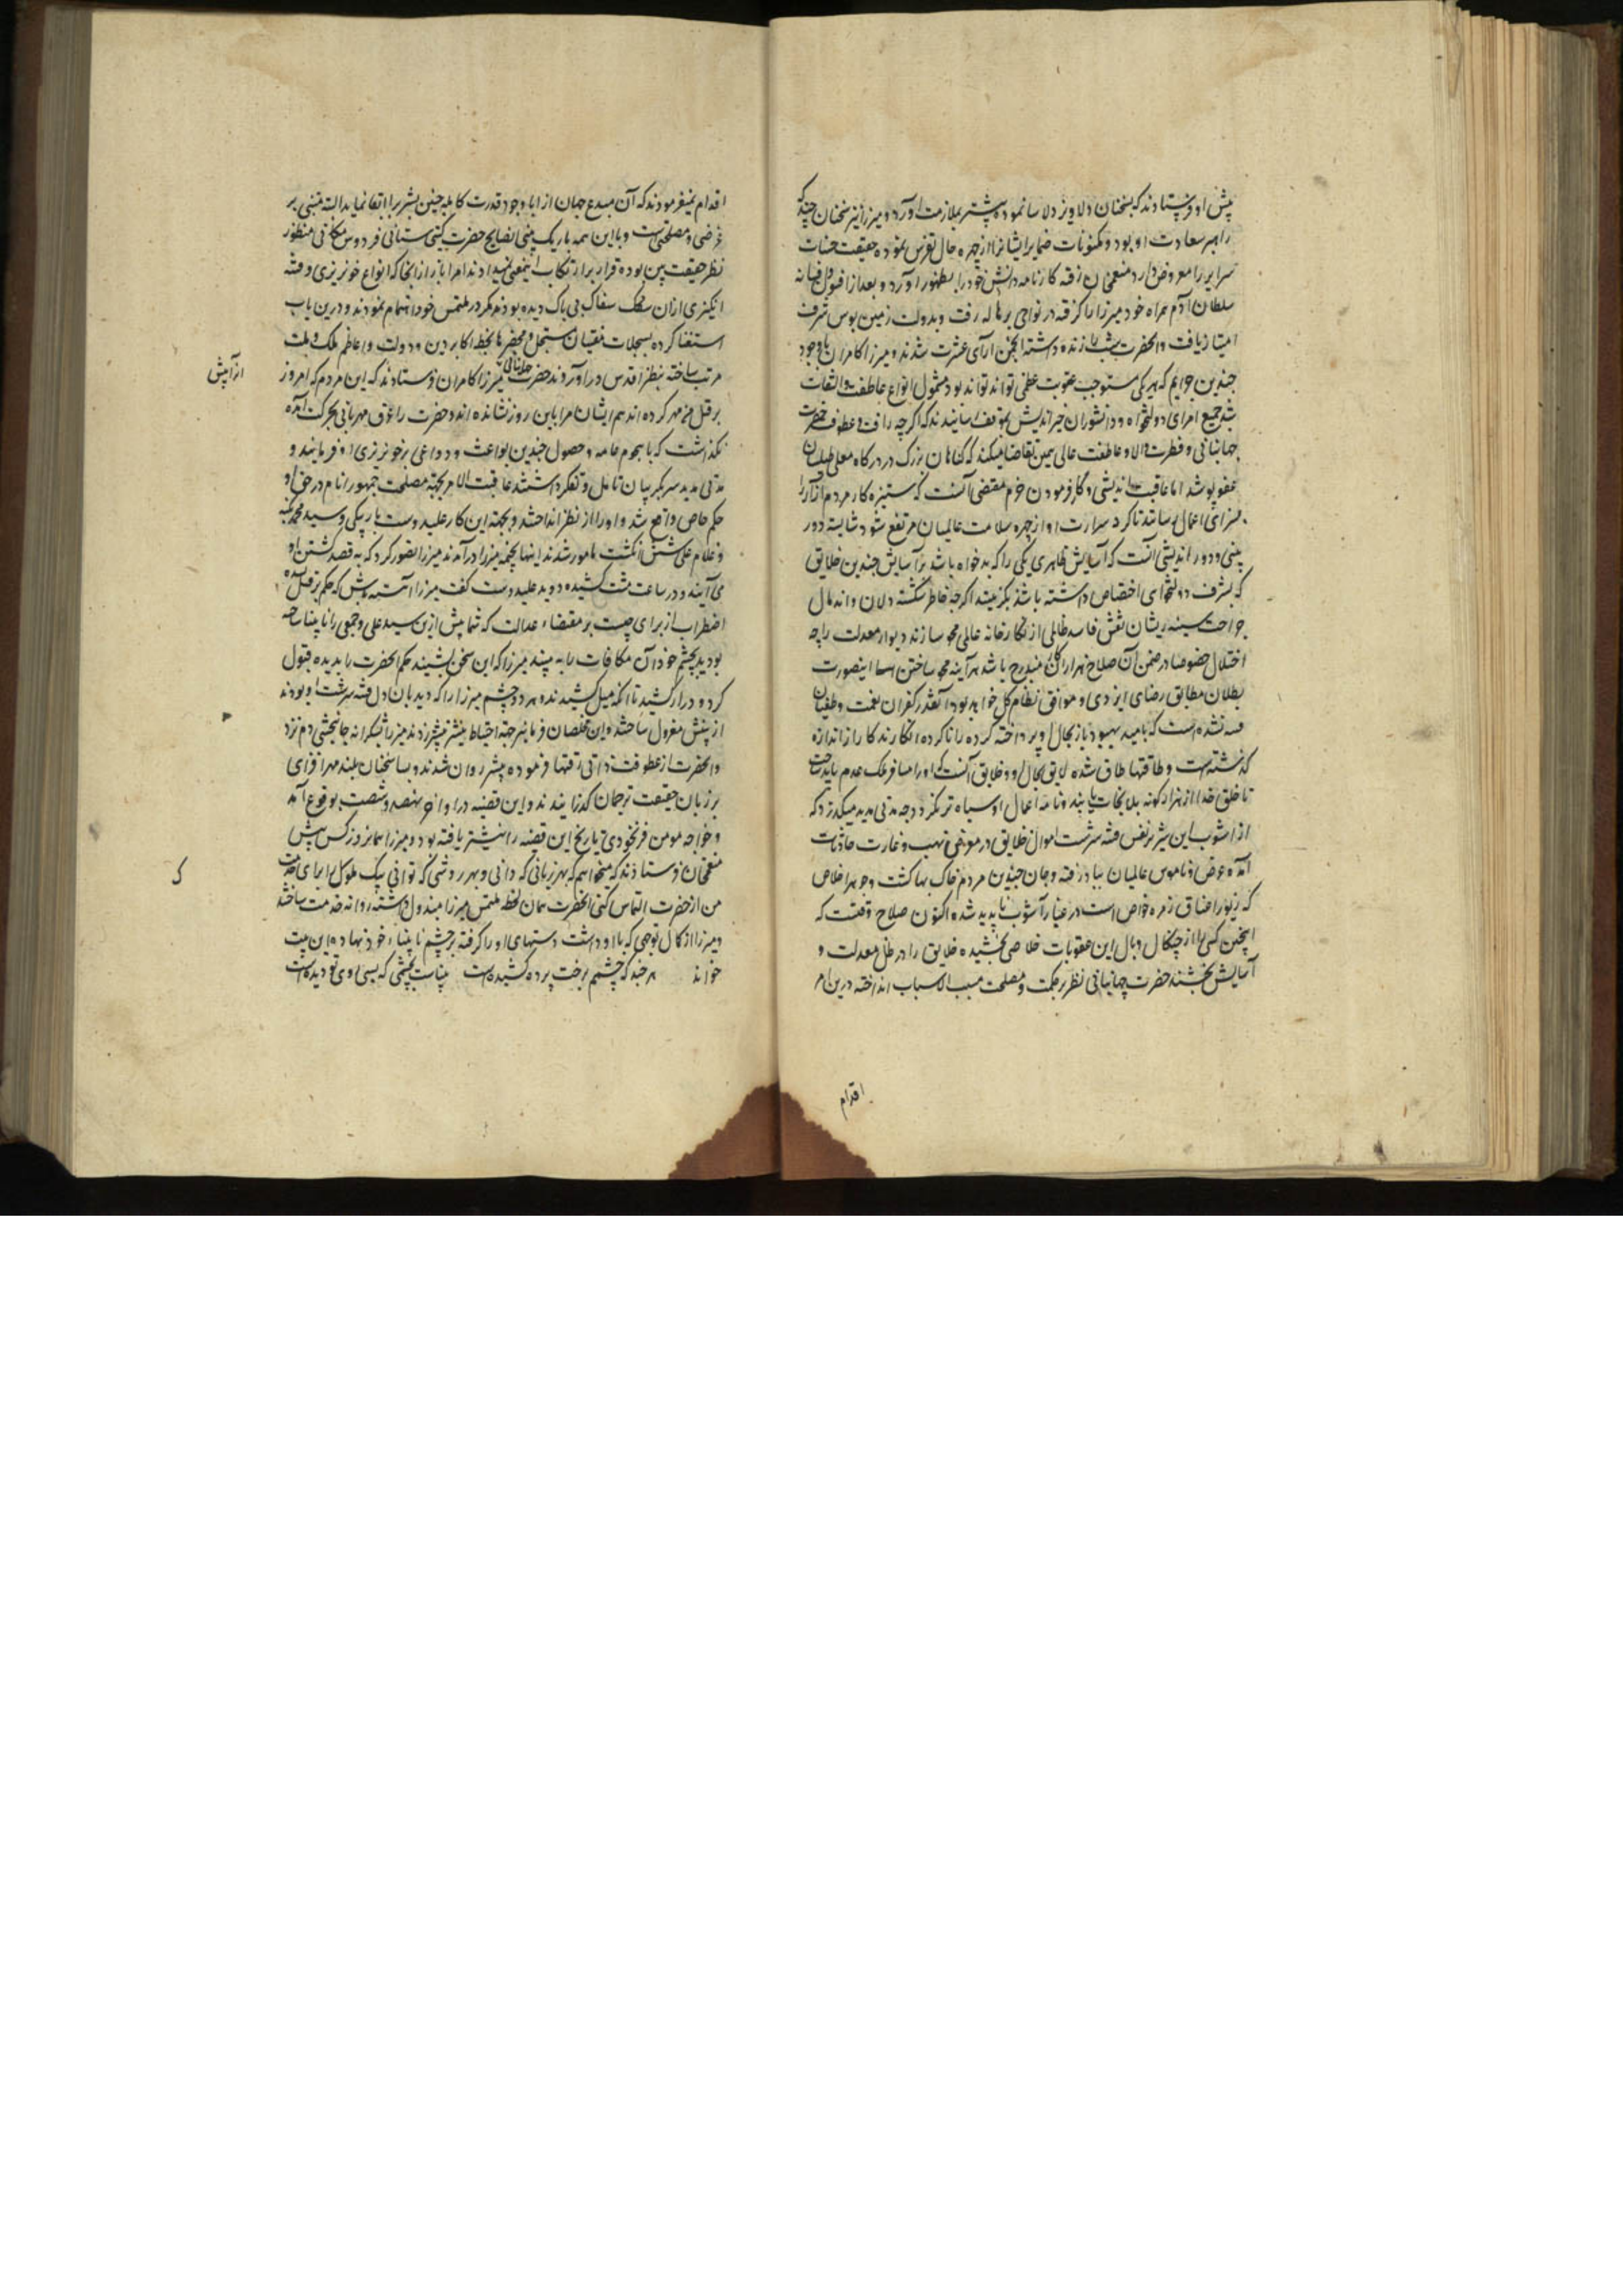 پیش او فرستادند که بسخنان دلاویز دلاسا نموده پیشتر بملازمت آورد و میرزا نیز سخنان چند که
راهبر سعادت او بود و مکنونات ضمایر ایشانرا از چهره حال تفرس نموده حقیقت حسنات
سرایر را معروض دارد منعم خان رفته کارنامه دانش خود را بظهور آورد و بعد از قبول
سلطان آدم همراه خود میرزا را گرفته در نواحی پرهاله رفت و بدولت زمین بوس شرف
امتیاز یافت و آنحضرت شب را زنده داشته انجمن آرای عشرت شدند و میرزا کامران با وجود
چندین جرایم که هر یکی مستوجب عقوبت عظمی تواند بود مشمول انواع عاطفت و التفات
شد جمیع امرای دولتخواه و دانشوران خیراندیش بموقف رسانیدند که اگرچه رافت و عطوفت حضرت
جهانبانی و فطرت والا و عاطفت عالی همین تقاضا میکند که گناهان بزرگ در درگاه معلی طیلسان
عفو پوشد اما عاقبت اندیشی و کار فرمودن حزم مقتضی آنست که ستیزه کار مردم آزار را
بسزای اعمال رسانند تا گرد شرارت او از چهره سلامت عالمیان مرتفع شود شایسته دور
بینی و دور اندیشی آنست که آسایش ظاهری یکی را که بدخواه باشد بر آسایش چندین خلایق
که بشرف دولتخواهی اختصاص داشته باشد نگزینند اگرچه خاطر شکسته دلان و اندمال
جراحت سینه ریشان نقش فاسد ظالمی از نگارخانه عالمی محو سازند دیوار معدلت را چه
اختلال خصوصا در ضمن آن صلاح هزاران کار مندرج باشد هرآینه محو ساختن اینصورت
بطلان مطابق رضای ایزدی و موافق نظام کل خواهد بود آنقدر کفران نعمت و طغیان
نشده است که بامید بهبود باز بحال او پرداخته کرده را ناکرده انگارند کار از اندازه
گذشته است و طاقتها طاق شده لایق بحال او و خلایق آنست که او را مسافر ملک عدم باید ساخت
تا خلق خدا از هزار گونه بلا نجات یابند و نامه اعمال او سیاه تر نگردد چه مدتی مدید میگذرد که
از آشوب این شریر نفس فتنه سرشت اموال خلایق در معرض نهب و غارت حادثات
آمده عرض و ناموس عالمیان بباد رفته و جان چندین مردم خاک بها گشت و جوهر اخلاص
که زیور اعناق زمره خواص است در غبار آشوب ناپدید شده اکنون صلاح وقتست که
اینچنین کسی را از چنگال وبال این عقوبات خلاصی بخشیده خلایق را در ظل معدلت و
آسایش بخشند حضرت جهانبانی نظر بر حکمت و مصلحت مسبب الاسباب انداخته درین امر
اقدام
اقدام نمیفرمودند که آن مبدع جهان آرا با وجود قدرت کامله چنین بشر بر ابقا نماید البته مبتنی بر
غرضی و مصلحتی است و با این همه باریک بینی نصایح حضرت گیتی ستانی فردوس مکانی منظور
نظر حقیقت بین بوده قرار بر ارتکاب اینمعنی نمیدادند امرا باز از آنجا که انواع خونریزی و فتنه
انگیزی ازان سفاک بی باک دیده بودند مکرر در ملتمس خود اهتمام نمودند و درین باب
استفتا کرده بسجلات مفتیان مسجل و محضرها بخط اکابر دین و دولت و اعاظم ملک و ملت
مرتب ساخته بنظر اقدس در آوردند حضرت جهانبانی بمیرزا کامران فرستادند که این مردم که امروز
بر قتل من مهر کرده اند هم ایشان مرا باین روز نشانده اند و حضرت را عرق مهربانی بحرکت آمده
نگذاشت که با هجوم عامه و حصول چندین بواعث و دواعی بر خونریزی او فرمایند و
مدتی مدید سر بگریبان تامل و تفکر داشتند عاقبت الامر بجهة مصلحت جمهور انام در حق او
حکم خاص واقع شد و او را از نظر انداختند و بجهة این کار علی دوست باربیگی و سید محمد پکنه
و غلام علی شش انگشت مامور شدند اینها بخیمه میرزا درآمدند میرزا تصور کرد که به قصد کشتن او
می آیند و در ساعت مشت کشیده دوید علی دوست گفت میرزا آهسته باش که حکم بر قتل نشده
اضطراب از برای چیست بر مقتضاء عدالت که شما پیش ازین سید علی و جمعی را نابینا ساخته
بودید بچشم خود آن مکافات را به بیند میرزا که این سخن بشنید حکم آنحضرت را بدیده قبول
کرد و دراز کشید تا آنکه میل کشیدند و هر دو چشم میرزا را که دیدبان دل فتنه سرشت او بودند
از بینش معزول ساختند و این مخلصان فرمانبر جهة احتیاط نیشتر بیشتر زدند میرزا بشکرانه جانبخشی دم نزد
و آنحضرت از عطوفت ذاتی رقتها فرموده پیشتر روان شدند و بسا سخنان بلند مهرافزای
بر زبان حقیقت ترجمان گذرانیدند و این قضیه در اواخر نهصد و شصت بوقوع آمد
و خواجه مومن فرنخودی تاریخ این قضیه را نیشتر یافته بود و میرزا همانروز کس پیش
منعم خان فرستادند که میخواهم که بهر زبانی که دانی و بهر روشی که توانی بیک ملوک را برای خدمت
من از حضرت التماس کنی آنحضرت همان لحظه ملتمس میرزا مبذول داشته روانه خدمت ساختند
و میرزا از کمال توجهی که با او داشت دستهای او را گرفته بر چشم نابیناء خود نهاده این بیت
خواند هر چند که چشمم برخت پرده کشیده است بیناست بچشمی که بسی روی تو دیده است